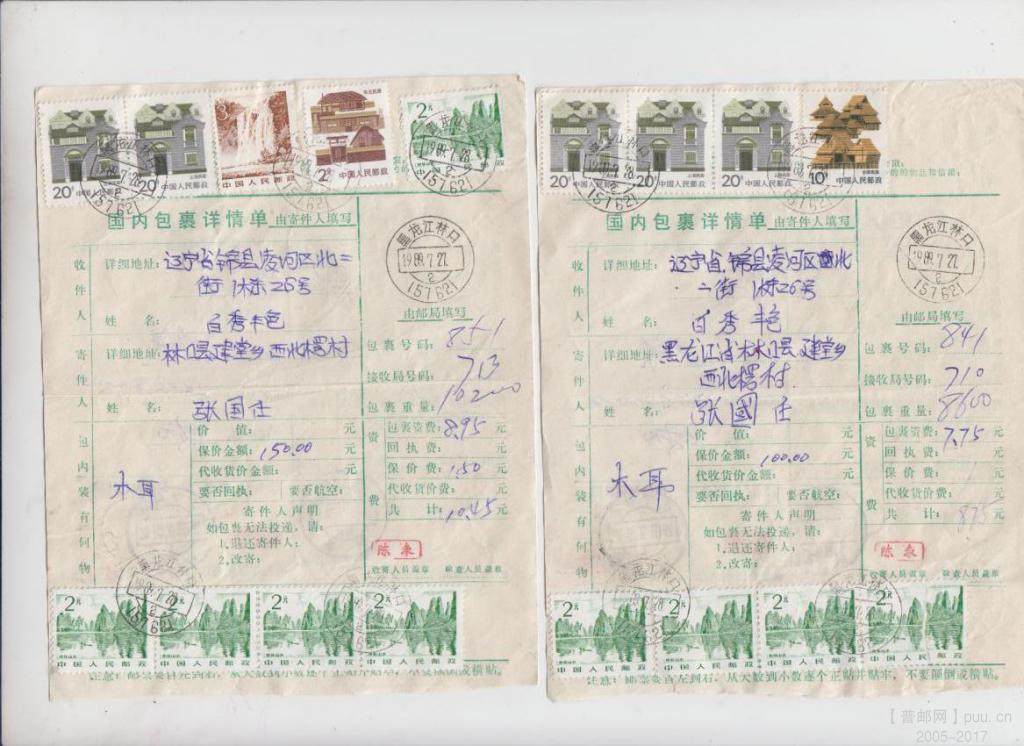 20分
20分
3分
2分
2元
中国人民邮政
中国人民邮政
中国人民邮政
黑龙江林口
1989.7.28
2
157621
国内包裹详情单 由寄件人填写
收件人
详细地址:辽宁省锦县凌河区北二
街1栋26号
姓 名:白秀艳
寄件人
详细地址:林口县建堂乡西北楞村
姓 名:张国任
包内装有何物
木耳
价 值: 元
保价金额:150.00 元
代收货价金额: 元
要否回执: 要否航空:
寄件人声明
如包裹无法投递,请:
1.退还寄件人;
2.改寄:
黑龙江林口
1989.7.27
2
157621
由邮局填写
包裹号码:851
接收局号码:713
包裹重量:10200
资费
包裹资费:8.95 元
回执费: 元
保价费:1.50 元
代收货价费: 元
共 计:10.45 元
收寄人员盖章 检查人员盖章
黑龙江林口
157621
2元
2元
2元
2元
中国人民邮政
中国人民邮政
中国人民邮政
中国人民邮政
20分
20分
20分
10分
中国人民邮政
中国人民邮政
中国人民邮政
中国人民邮政
国内包裹详情单 由寄件人填写
收件人
详细地址:辽宁省锦县凌河区北
二街1栋26号
姓 名:白秀艳
寄件人
详细地址:黑龙江省林口县建堂乡
西北楞村
姓 名:张國任
包内装有何物
木耳
价 值: 元
保价金额:100.00 元
代收货价金额: 元
要否回执: 要否航空:
寄件人声明
如包裹无法投递,请:
1.退还寄件人;
2.改寄:
黑龙江林口
1989.7.27
2
157621
由邮局填写
包裹号码:841
接收局号码:710
包裹重量:8600
资费
包裹资费:7.75 元
回执费: 元
保价费: 元
代收货价费: 元
共 计:8.75 元
收寄人员盖章 检查人员盖章
2元
2元
2元
2元
中国人民邮政
中国人民邮政
中国人民邮政
中国人民邮政
从大数到小数逐个正贴并贴牢,不要颠倒或横贴。
【普邮网】puu.cn
2005-2017